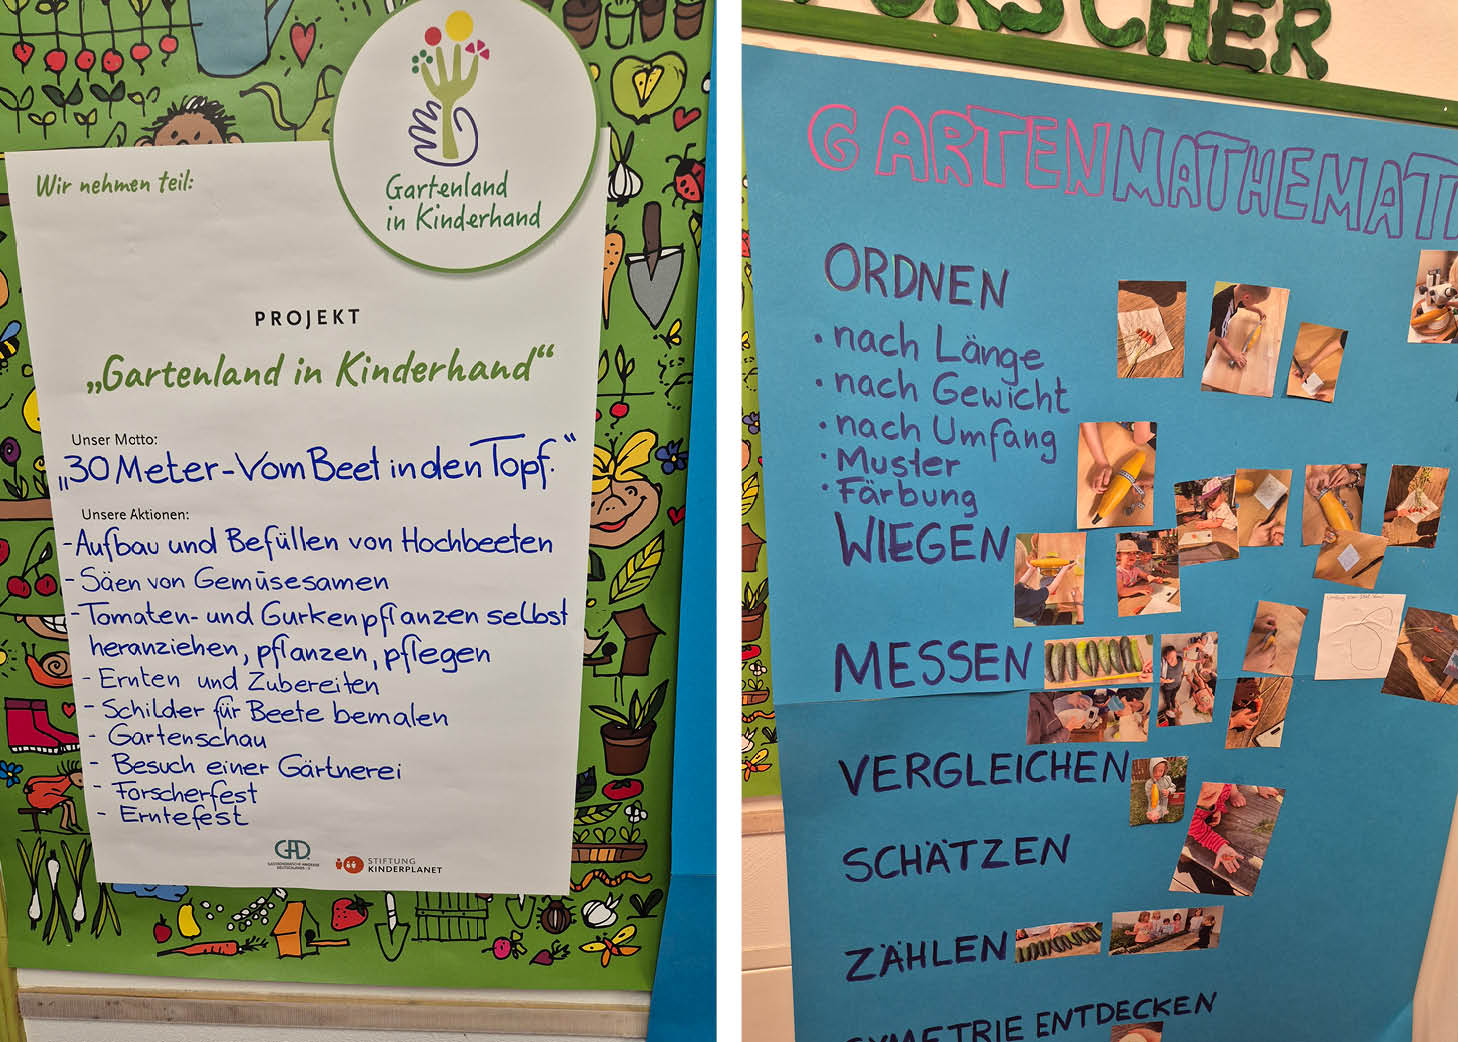 Wir nehmen teil:
Gartenland
in Kinderhand
PROJEKT
„Gartenland in Kinderhand“
Unser Motto:
„30 Meter-Vom Beet in den Topf.“
Unsere Aktionen:
- Aufbau und Befüllen von Hochbeeten
- Säen von Gemüsesamen
- Tomaten- und Gurkenpflanzen selbst
heranziehen, pflanzen, pflegen
- Ernten und Zubereiten
- Schilder für Beete bemalen
- Gartenschau
- Besuch einer Gärtnerei
- Forscherfest
- Erntefest
GAD
GASTRONOMISCHE AKADEMIE
DEUTSCHLANDS e.V.
STIFTUNG
KINDERPLANET
FORSCHER
GARTENMATHEMATI
ORDNEN
• nach Länge
• nach Gewicht
• nach Umfang
• Muster
• Färbung
WIEGEN
MESSEN
VERGLEICHEN
SCHÄTZEN
ZÄHLEN
SYMETRIE ENTDECKEN